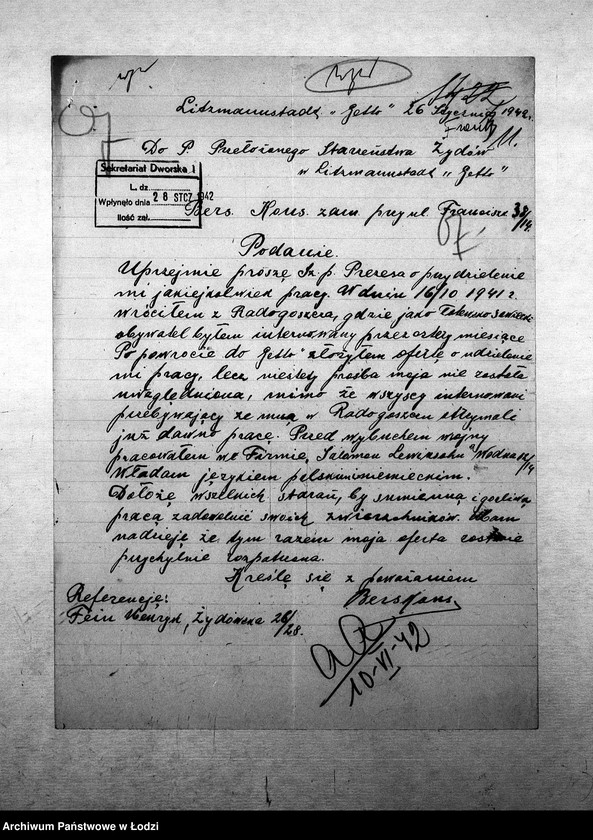 Litzmannstadt „Getto" 26 Stycznia 1942.
Do P. Przełożonego Starszeństwa Żydów
w Litzmannstadt „Getto"
Sekretariat Dworska 1
L. dz.
Wpłynęło dnia 28 STCZ 1942
Ilość zał.
Bers. Kons. zam. przy ul. Francisz. 38/14.
Podanie.
Uprzejmie proszę Sz. p. Prezesa o przydzielenie
mi jakiejkolwiek pracy. W dniu 16/10 1941 r.
wróciłem z Radogoszcza, gdzie jako
obywatel byłem internowany przez cztery miesiące
Po powrocie do Getto" złożyłem ofertę o udzielenie
mi pracy, lecz niestety prośba moja nie została
uwzględniona, mimo że wszyscy internowani
przebywający ze mną w Radogoszczu otrzymali
już dawno pracę. Przed wybuchem wojny
pracowałem w Firmie, Salomon Lewinsohn" Wodna 12/14
Władam językiem polskim i niemieckim.
Dołożę wszelkich starań, by sumienną i gorliwą
pracą zadowolnić swoich zwierzchników. Mam
nadzieję że tym razem moja oferta zostanie
przychylnie rozpatrzona.
Kreślę się z poważaniem
Bers Kons.
Referencje:
Fein Henryk, Żydowska 26/28.
a a
10-VI-42
Archiwum Państwowe w Łodzi